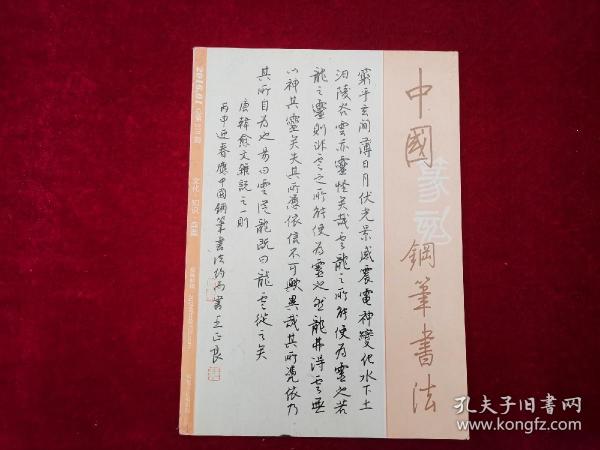 中國鋼筆書法
篆刻
窮乎玄間薄日月伏光景感震電神變化水下土
汩陵谷雲亦靈怪矣哉雲龍之所能使為靈也若
龍之靈則非雲之所能使為靈也然龍弗得雲無
以神其靈矣失其所憑依信不可歟異哉其所憑依乃
其所自為也易曰雲從龍既曰龍雲從之矣
唐韓愈文雜說之一則
丙申迎春應中國鋼筆書法約而書王正良
2016.01
文化 知识
孔夫子旧书网
www.kongfz.com